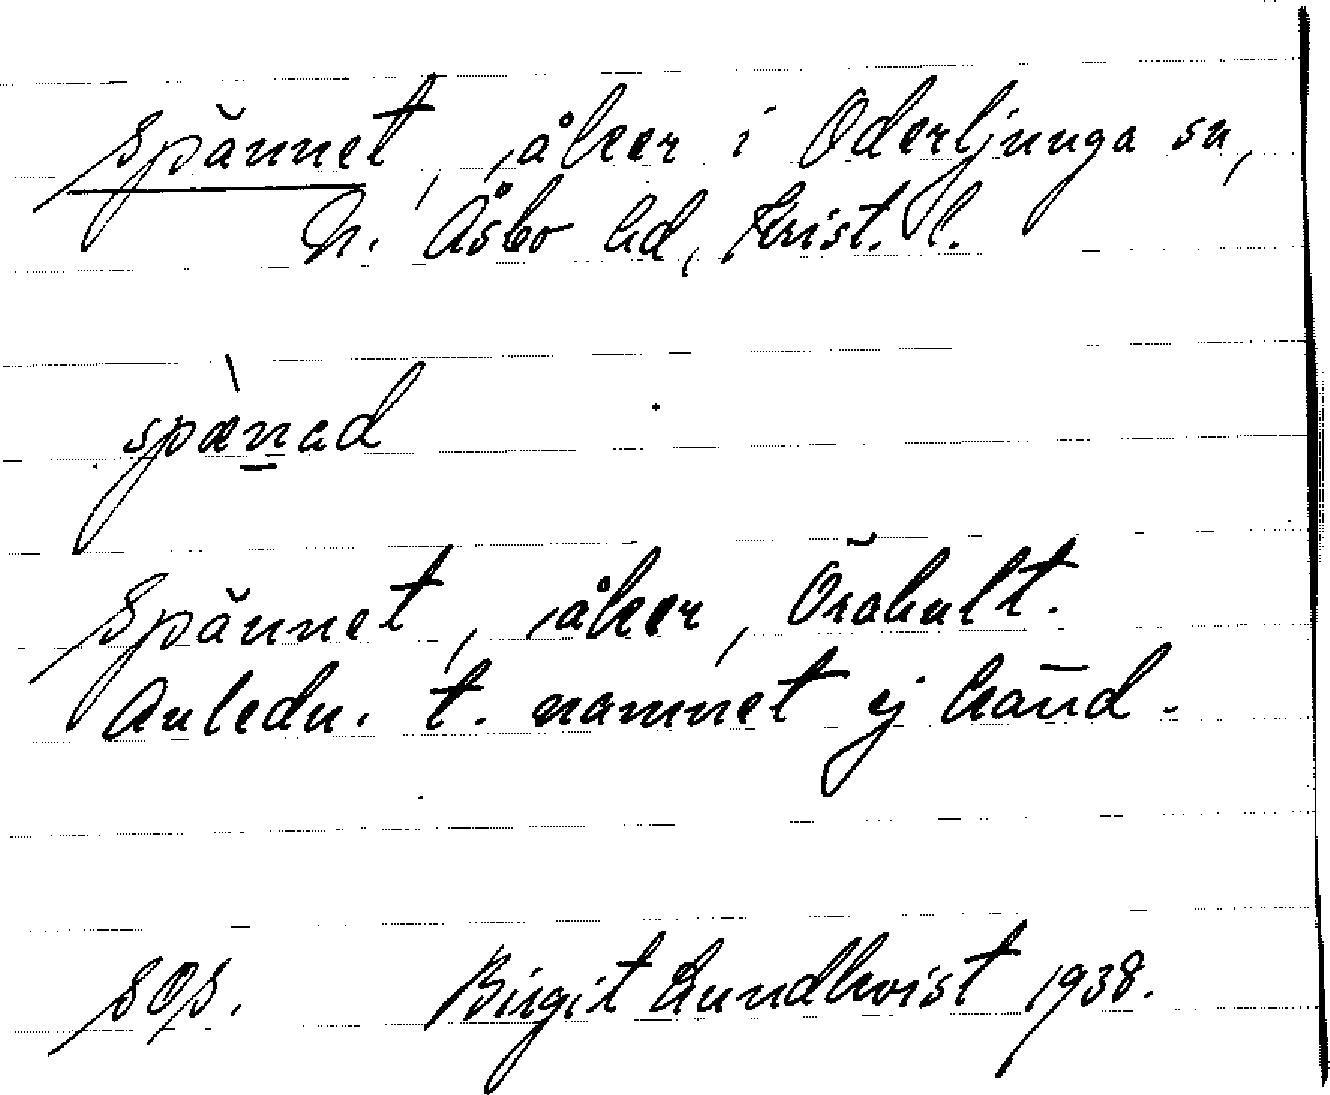 Spännet, åker i Oderljunga sn,
N. Åsbo hd, Krist. l.
spæ̀n̲ad
Spännet, åker, Örahult.
Anledn. t. namnet ej känd.
SOS. Birgit Lundkvist 1938.